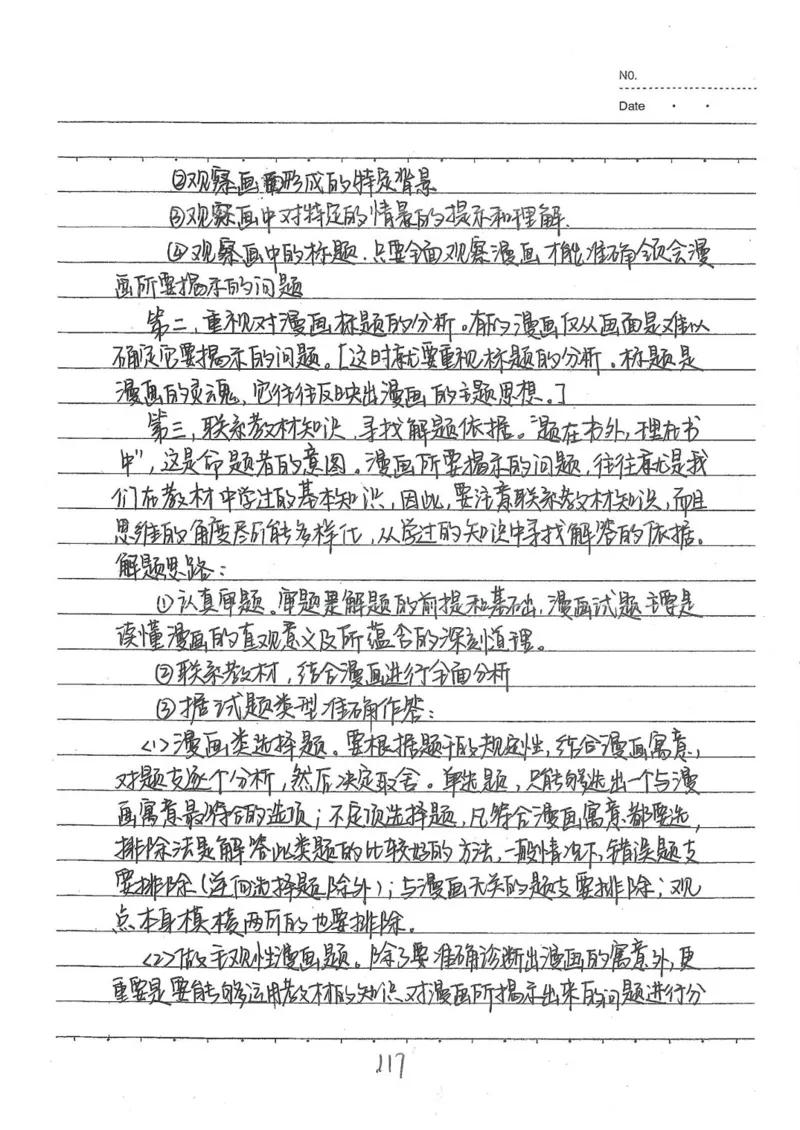 No.
Date
②观察画面形成的特定背景
③观察画中对特定的情景的提示和理解.
④观察画中的标题.只要全面观察漫画才能准确领会漫
画所要揭示的问题
第二,重视对漫画标题的分析。有的漫画仅从画面是难以
确定它要揭示的问题。[这时就要重视标题的分析。标题是
漫画的灵魂,它往往反映出漫画的主题思想。]
第三,联系教材知识,寻找解题依据。"题在书外,理在书
中",这是命题者的意图。漫画所要揭示的问题,往往就是我
们在教材中学过的基本知识,因此,要注意联系教材知识,而且
思维的角度尽所能多样化,从学过的知识中寻找解答的依据。
解题思路:
①认真审题。审题是解题的前提和基础,漫画试题主要是
读懂漫画的直观意义及所蕴含的深刻道理。
②联系教材,结合漫画进行全面分析
③据试题类型准确作答:
<1>漫画类选择题。要根据题干的规定性,结合漫画寓意,
对题支逐个分析,然后决定取舍。单选题,只能够选出一个与漫
画寓意最符合的选项;不定项选择题,凡符合漫画寓意都要选,
排除法是解答此类题的比较好的方法,一般情况下,错误题支
要排除(逆向选择题除外);与漫画无关的题支要排除;观
点本身模棱两可的也要排除。
<2>做主观性漫画题。除了要准确诊断出漫画的寓意外,更
重要是要能够运用教材的知识对漫画所揭示出来的问题进行分
117